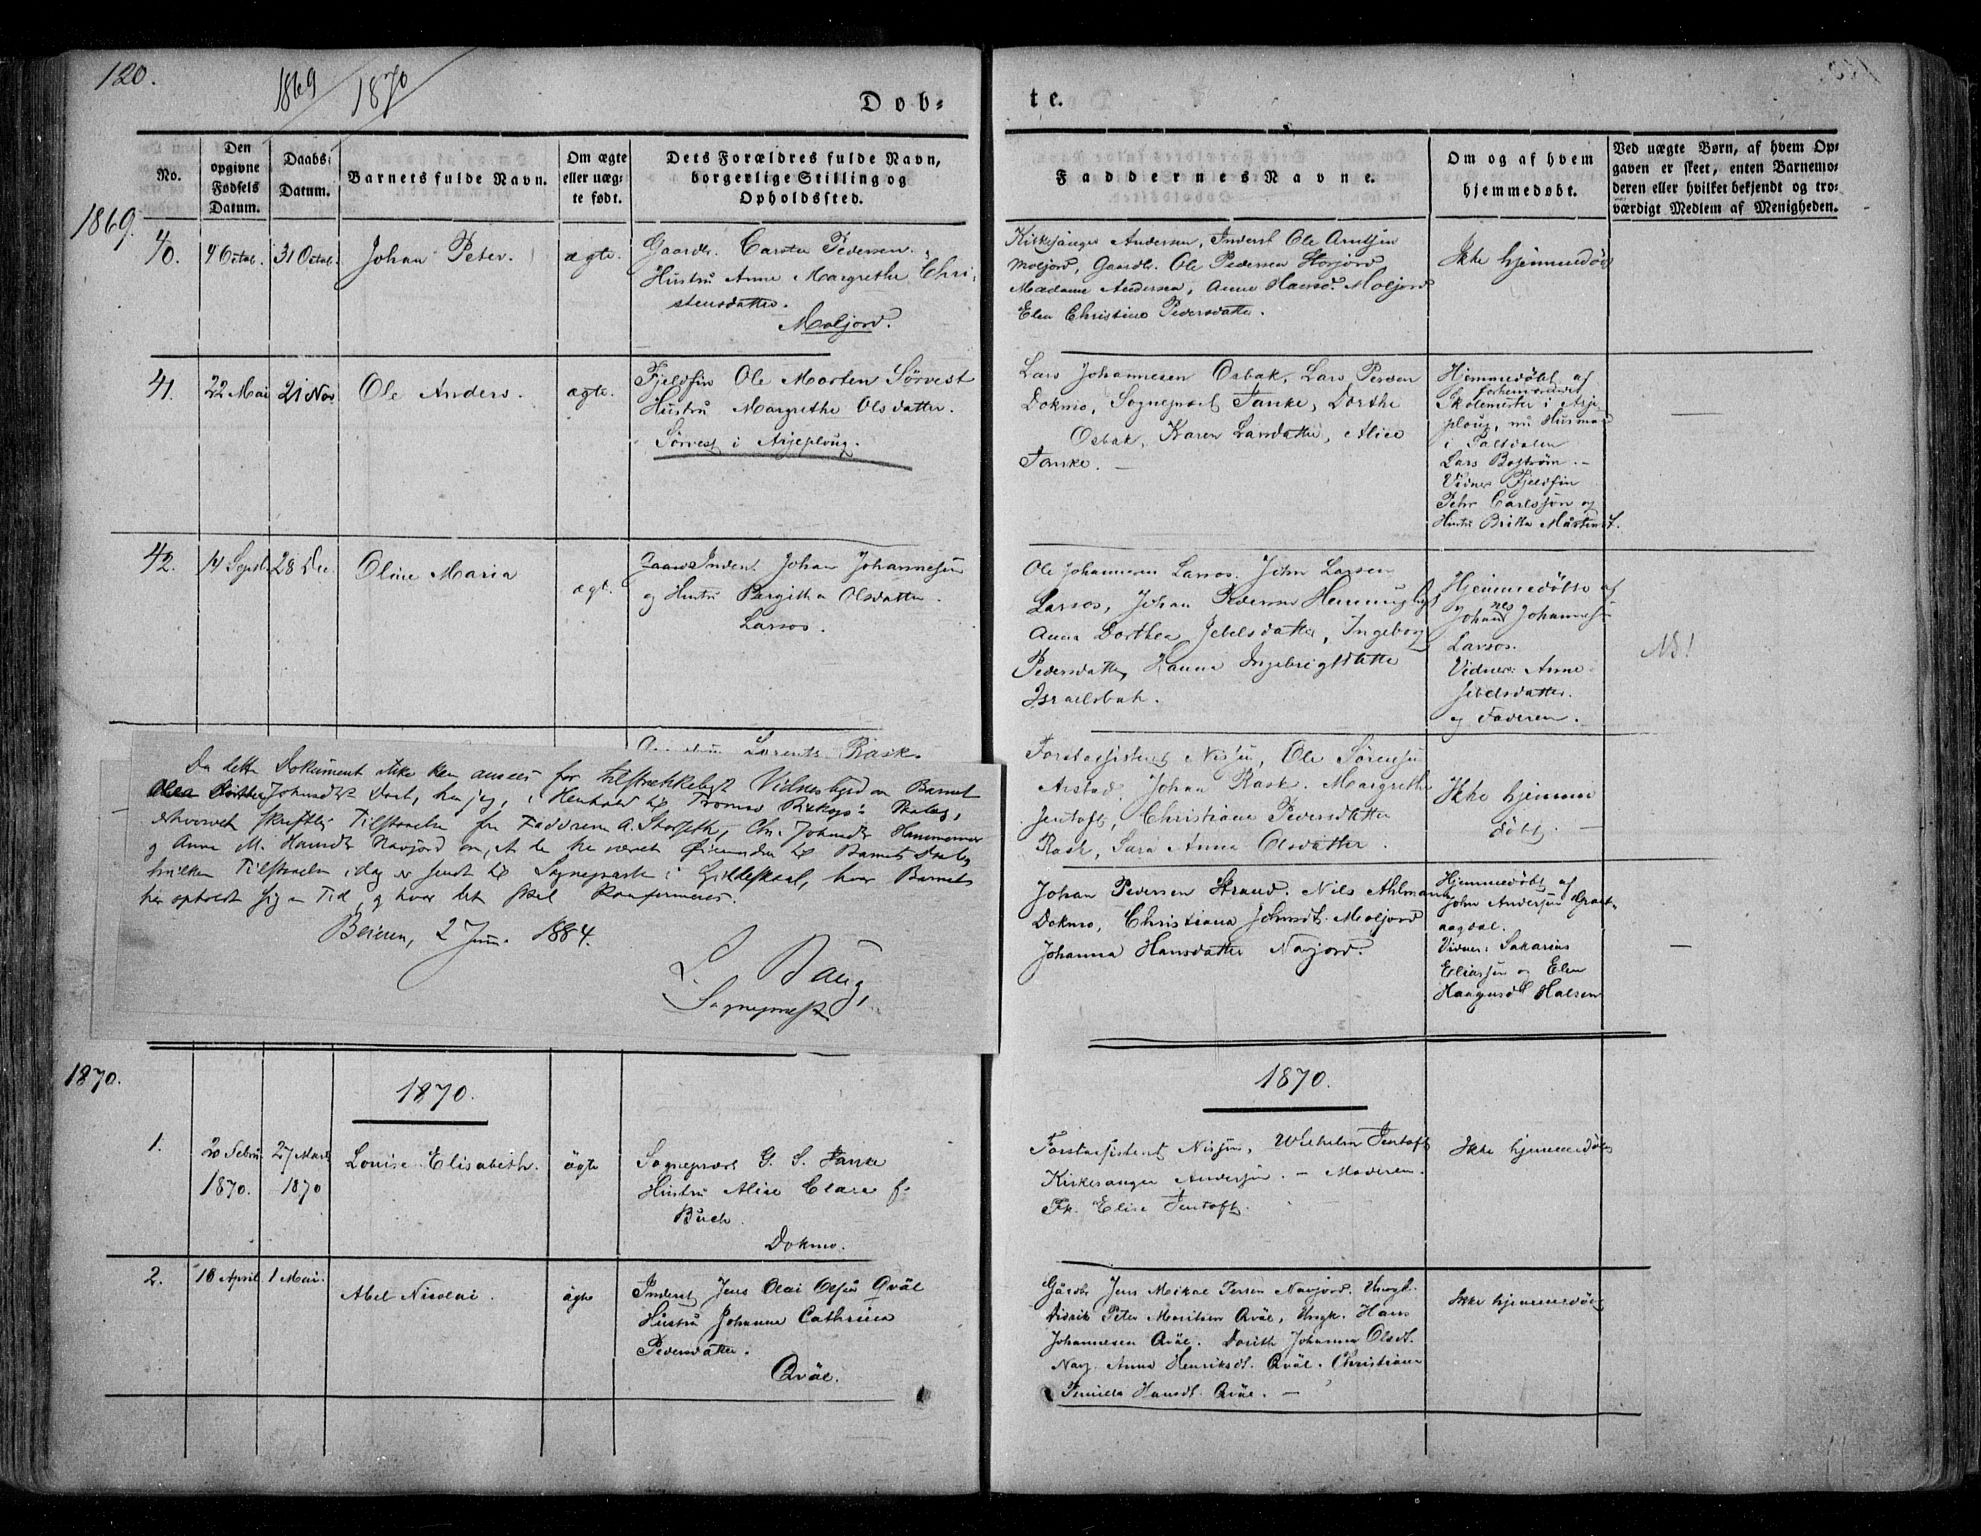 120.
1869 / 1870
Døb=
te.
No.
Den opgivne Fødsels Datum.
Daabs: Datum.
Barnets fulde Navn.
Om ægte eller uæg- te født.
Dets Forældres fulde Navn, borgerlige Stilling og Opholdssted.
Faddernes Navne.
Om og af hvem hjemmedøbt.
Ved uægte Børn, af hvem Op- gaven er skeet, enten Barnemo- deren eller hvilket bekjendt og tro- værdigt Medlem af Menigheden.
1869.
40.
4 Octob.
31 Octob.
Johan Peter.
ægte.
Gaardb. Carsten Pedersen.
Hustru Anne Margrethe Chri-
stensdatter.
Moljord.
Kirkesanger Andersen, Inderst Ole Arntsen
Moljord, Gaardb. Ole Pedersen
Madame Andersen, Anne Hansd. Moljord
Elen Christine Pedersdatter.
Ikke hjemmedøbt
41.
22 Mai
21 Nov
Ole Anders.
ægte.
Fjeldfin Ole Morten Sørvest
Hustru Margrethe Olsdatter.
Sørvest i Arjeploug.
Lars Johannesen Osbak, Lars Persen
Dokmo, Sognepræst Tanke, Dorthe
Osbak, Karen Larsdatter, Alice
Tanke. —
Hjemmedøbt af
forhenværende
Skolemester i Arje-
ploug, nu Husmand
i Saltdalen
Lars Boström. —
Vidner Fjeldfin
Pehr Carlsson og
Hustru Britta Mårtensd.
—
42.
14 Septb.
28 Dec.
Oline Maria
ægt.
Inderst Johan Johannesen
og Hustru Bergitha Olsdatter.
Larsos.
Ole Johannesen Larsos. John Larsen
Larsos, Johan Pedersen
Anna Dorthea Jebelsdatter, Ingeborg
Pedersdatter, Hanna Ingebrigtsdatter
Israelsbak.
Hjemmedøbt af
Johannes Johannessen
Larsos.
Vidner: Anne
Jebelsdatter.
og Faderen.
NB!
Lorents Rask.
Forstassistent Nissen, Ole Sørensen
Arstad. Johan Rask. Margrethe
Jentoft, Christiane Pedersdatter
Rask, Sara Anna Olsdatter.
Ikke hjemme
døbt. —
Johan Pedersen Strand. Nils Ahlmann
Dokmo, Christiana Johnsdt. Moljord
Johanna Hansdatter Navjord.
Hjemmedøbt af
John Andersen
Vidner: Sakarias
Eliassen og Elen
Haagensdt. Halsen
—
Da dette Dokument ikke kan ansees for tilstrækkeligt Vidnesbyrd om Barnet
Johnsdt. Daab, har jeg, i Henhold til Tromsø Biskops
erhvervet skriftlig Tilstaaelse fra Fadderne A. Storjord, Chr. Johnsdt.
og Anne M. Hansdt. Navjord om, at de har været Øienvidne til Barnets Daab,
hvilken Tilstaaelse idag er sendt til Sognepræsten i Gildeskaal, hvor Barnet
har opholdt sig en Tid, og hvor det skal konfirmeres.
Beieren, 2 Juni 1884.
Sognepræst.
1870.
1870.
1870.
1.
20 Febru
1870.
27 Marts
1870
Louise Elisabeth.
ägte
Sognepræst G. S. Tanke
Hustru Alice Clara f.
Buch.
Dokmo.
Forstassistent Nissen, Wilhelm Jentoft
Kirkesanger Andersen. — Moderen.
Frk. Elise Jentoft.
Ikke hjemmedøbt
2.
18 April
1 Mai.
Abel Nicolai.
ägte
Inderst Jens Olai Olsen Qväl
Hustru Johanna Cathrina
Pedersdatter.
Qväl.
Gårdb. Jens Mikal Persen Navjord. Ungk.
Didrik Peter Moritsen Qväl, Ungk. Hans
Johannesen Qväl. Dorith Johanna Olsdt.
Navj. Anna Henriksdt. Qväl. Christiane
Pernilla Hansdt. Qväl. —
Ikke hjemmedøbt